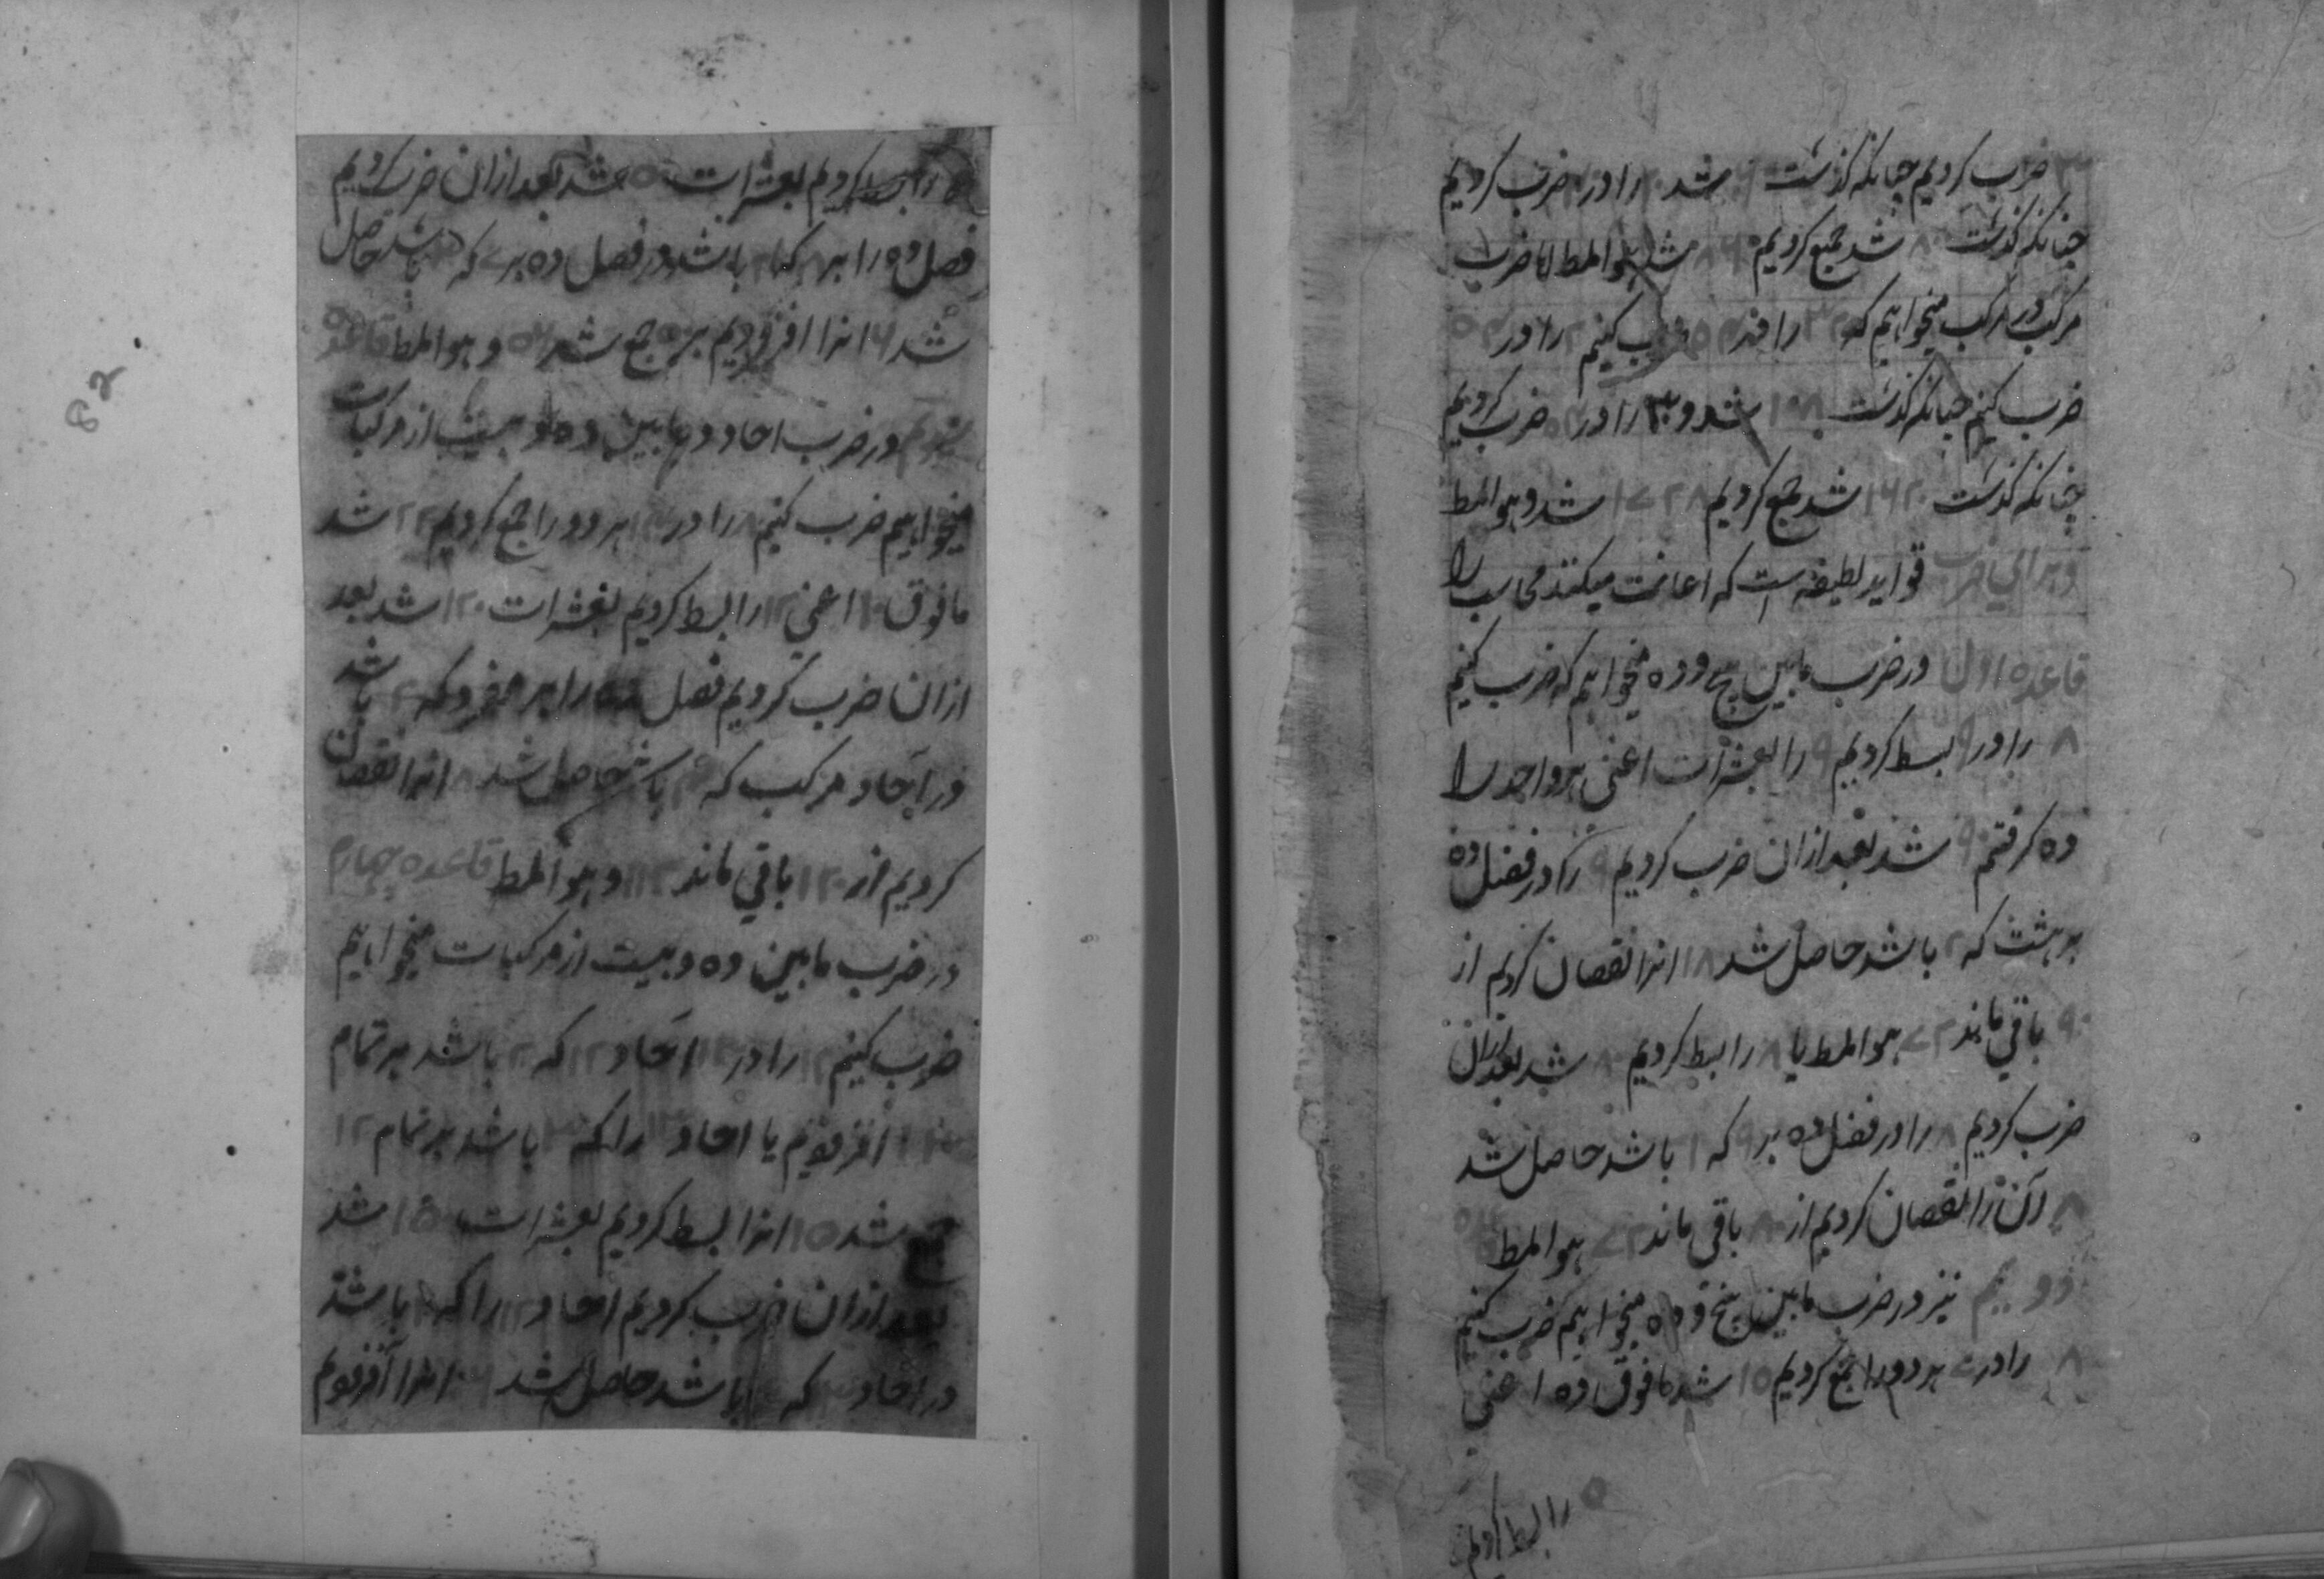 ضرب کردیم چنانکه گذشت شد را در ضرب کردیم
چنانکه گذشت ۸۰ شد جمع کردیم ۸۶۰ شد هو المط اما ضرب
مرکب در مرکب میخواهیم که ۳۲ را در ۵۴ ضرب کنیم ۲ را در ۵۴
ضرب کنیم چنانکه گذشت ۱۰۸ شد و ۳۰ را در ۵۴ ضرب کردیم
چنانکه گذشت ۱۶۲۰ شد جمع کردیم ۱۷۲۸ شد و هو المط
و برای ضرب قواید لطیفه است که اعانت میکنند محاسب را
قاعده اول در ضرب مابین پنج و ده میخواهیم که ضرب کنیم
۸ را در ۹ بسط کردیم ۹ را بعشرات اعنی هر واحد را
ده گرفتم ۹۰ شد بعد ازان ضرب کردیم ۹ را در فضل ده
بر هشت که ۲ باشد حاصل شد ۱۸ انرا نقصان کردیم از
۹۰ باقی ماند ۷۲ هو المط یا ۸ را بسط کردیم ۸۰ شد بعد ازان
ضرب کردیم ۸ را در فضل ده بر ۹ که ۱ باشد حاصل شد
۸ آن را نقصان کردیم از ۸۰ باقی ماند ۷۲ هو المط
دویم نیز در ضرب مابین پنج و ده میخواهیم ضرب کنیم
۸ را در ۷ هر دو را جمع کردیم ۱۵ شد مافوق ده اعنی
۵ را بسط کردیم
۵ را بسط کردیم بعشرات ۵۰ شد بعد ازان ضرب کردیم
فصل ده را بر که ۲ باشد در فصل ده بر ۷ که ۳ باشد حاصل
شد ۶ انرا افزودیم بر ۵۰ جمع شد ۵۶ و هو المط قاعده
سیوم در ضرب احاد در مابین ده و بیست از مرکبات
میخواهیم ضرب کنیم ۸ را در ۱۴ هر دو را جمع کردیم ۲۲ شد
مافوق ۱۰ اعنی ۱۲ را بسط کردیم بعشرات ۱۲۰ شد بعد
ازان ضرب کردیم فصل ده را بر مفرد که ۲ باشد
در احاد مرکب که ۴ باشد حاصل شد ۸ انرا نقصان
کردیم از ۱۲۰ باقی ماند ۱۱۲ و هو المط قاعده چهارم
در ضرب مابین ده و بیست از مرکبات میخواهیم
ضرب کنیم ۱۲ را در ۱۳ احاد ۱۲ که ۲ باشد بر تمام
۱۳ افزودیم یا احاد ۱۳ را که ۳ باشد بر تمام ۱۲
جمع شد ۱۵ انرا بسط کردیم بعشرات ۱۵۰ شد
بعد ازان ضرب کردیم احاد ۱۲ را که ۲ باشد
در احاد ۱۳ که ۳ باشد حاصل شد ۶ انرا افزودیم
82